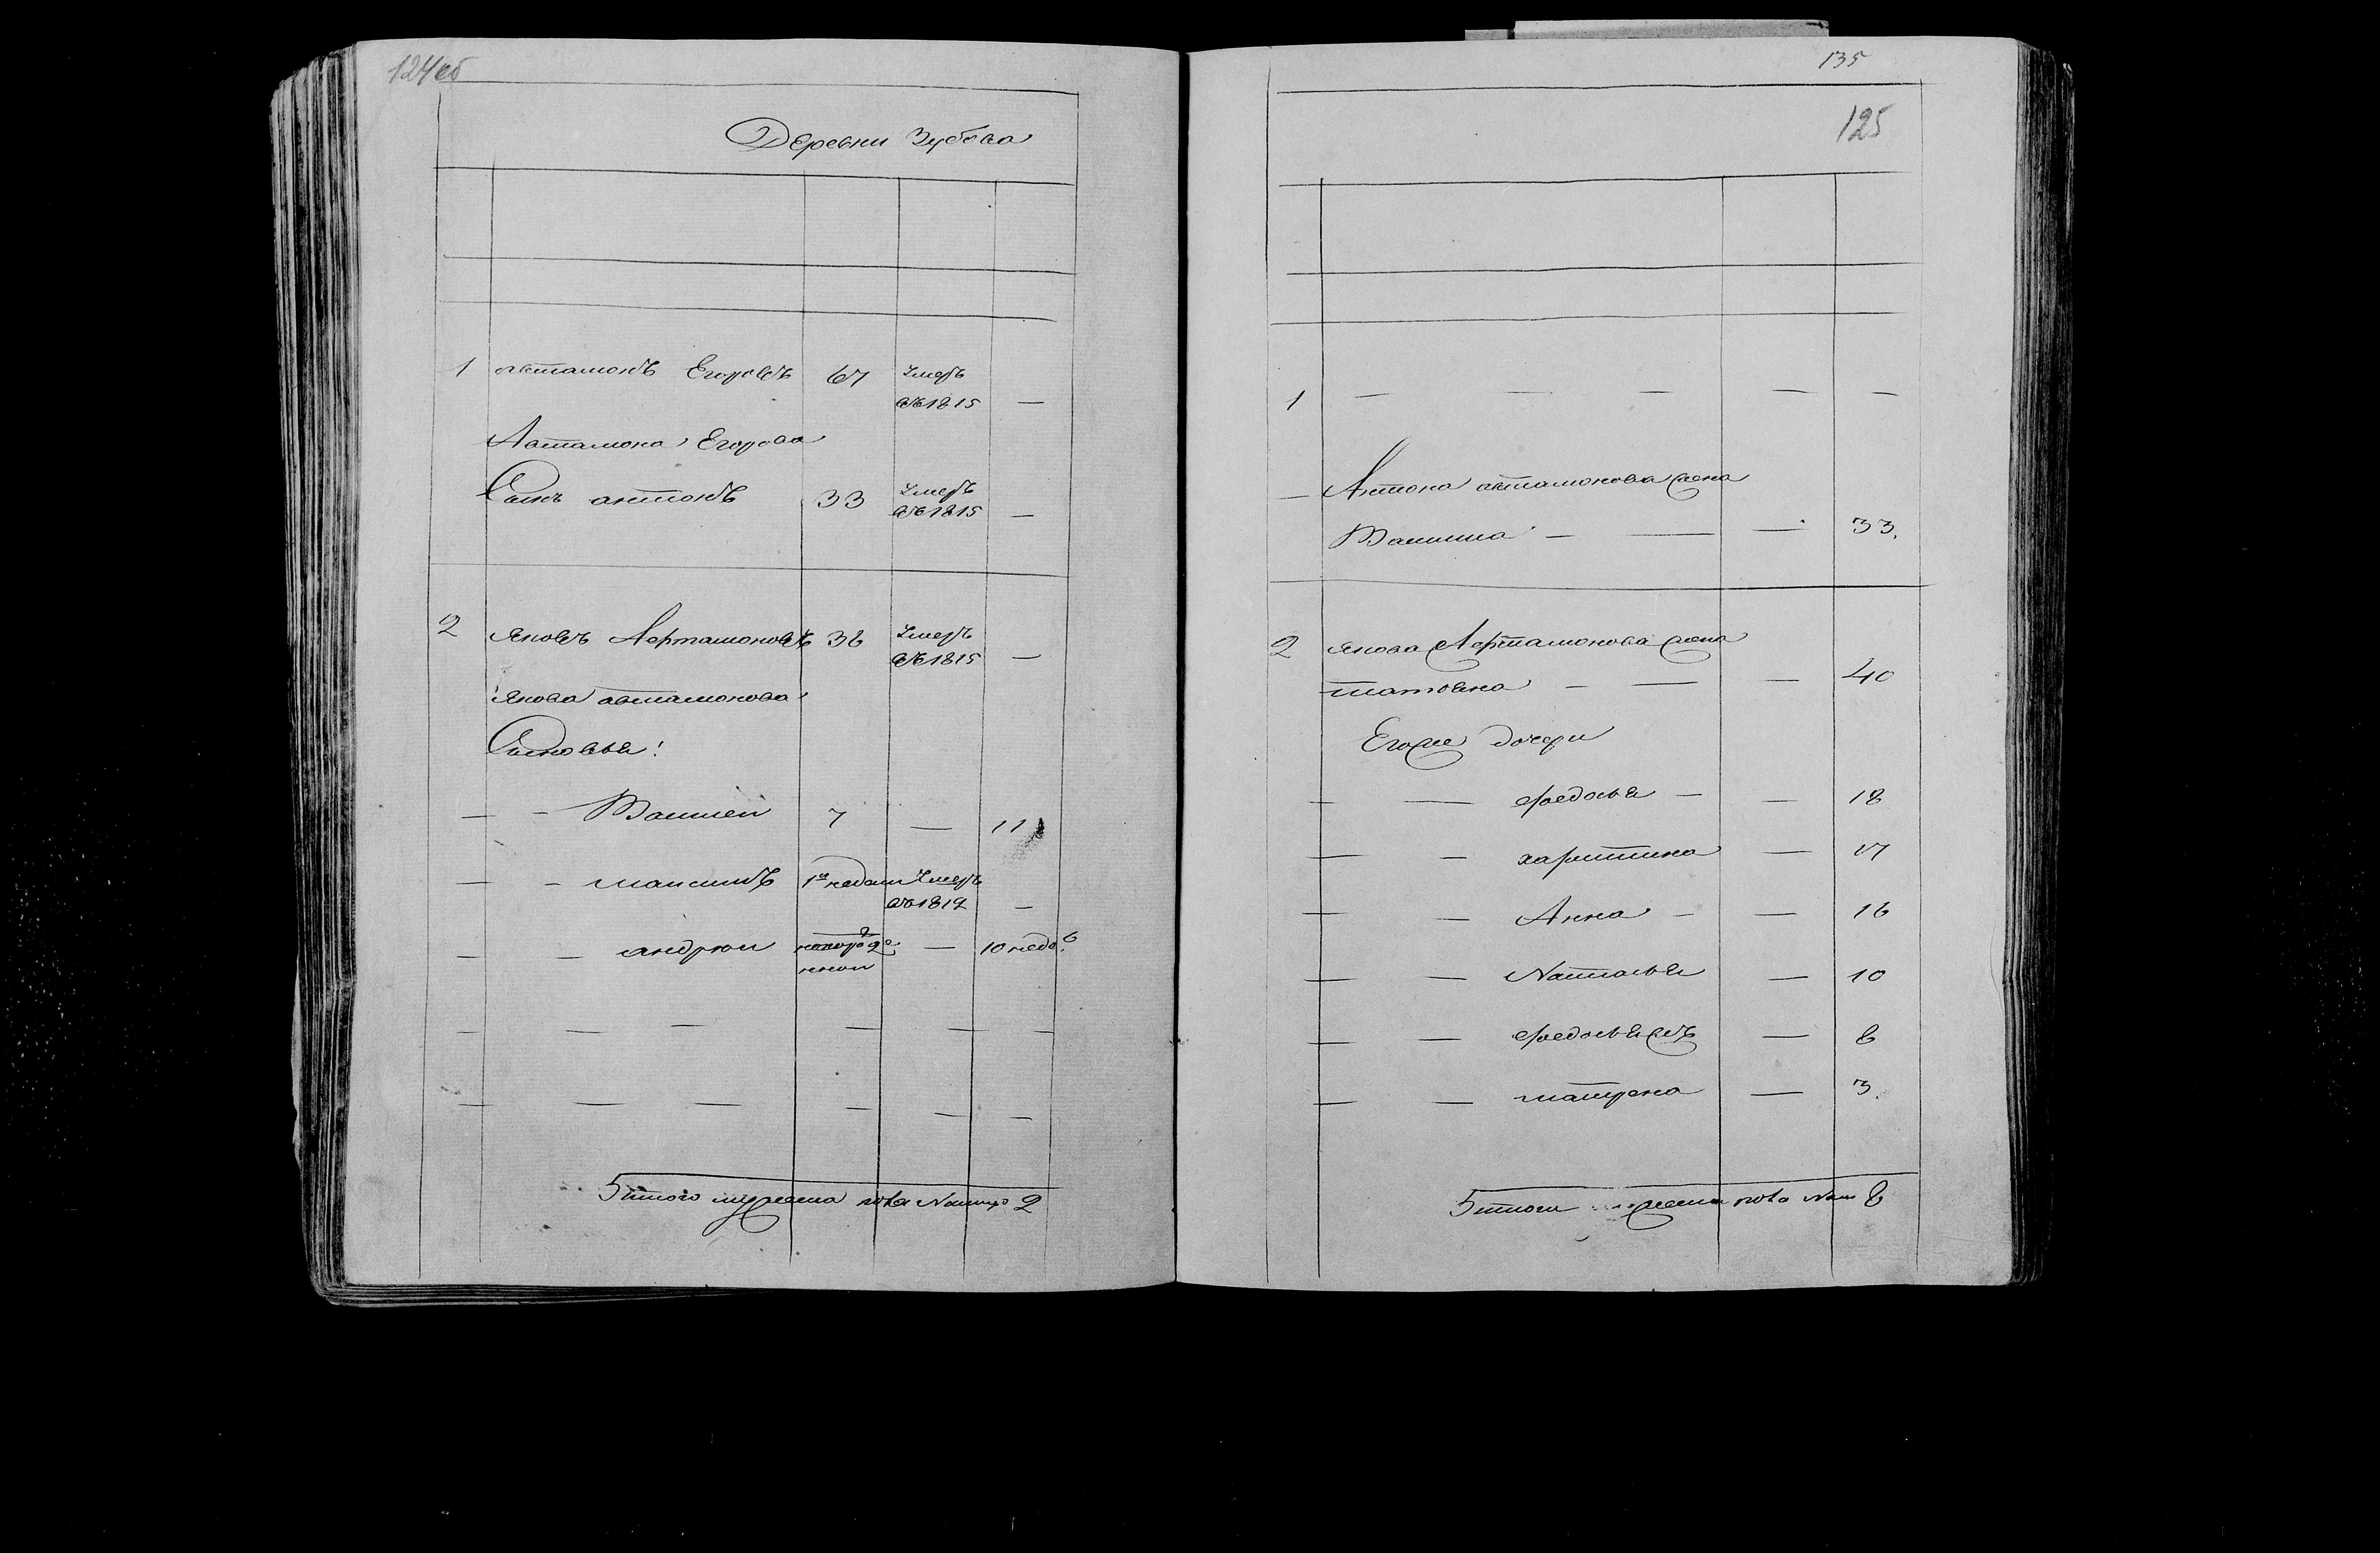 124об
Деревни Зубова
1 автамонъ Егоровъ 67 Умеръ
въ 1815 —
Автамона Егорова
Сынъ антонъ 33 Умеръ
въ 1815 —
2 Яковъ Артамоновъ 36 Умеръ
въ 1815 —
Якова автамонова
Сыновья:
— — Василей 7 — 11
— — максимъ Умеръ
въ 1812 —
— — андрюи — 10 недѣ
— — — — — —
— — — — — —
Итого мужеска пола Налицо 2
135
125
1 — — — — —
— Антона автамонова жена
Василиса — — — 33.
2 Якова Артамонова жена
— — — 40
Егоже дочери
— — федосья — — 18
— — харитина — 17
— — Анна — — 16
— — Наталья — 10
— — федосья — 8
— — матрена — 3.
Итого женска пола На 8